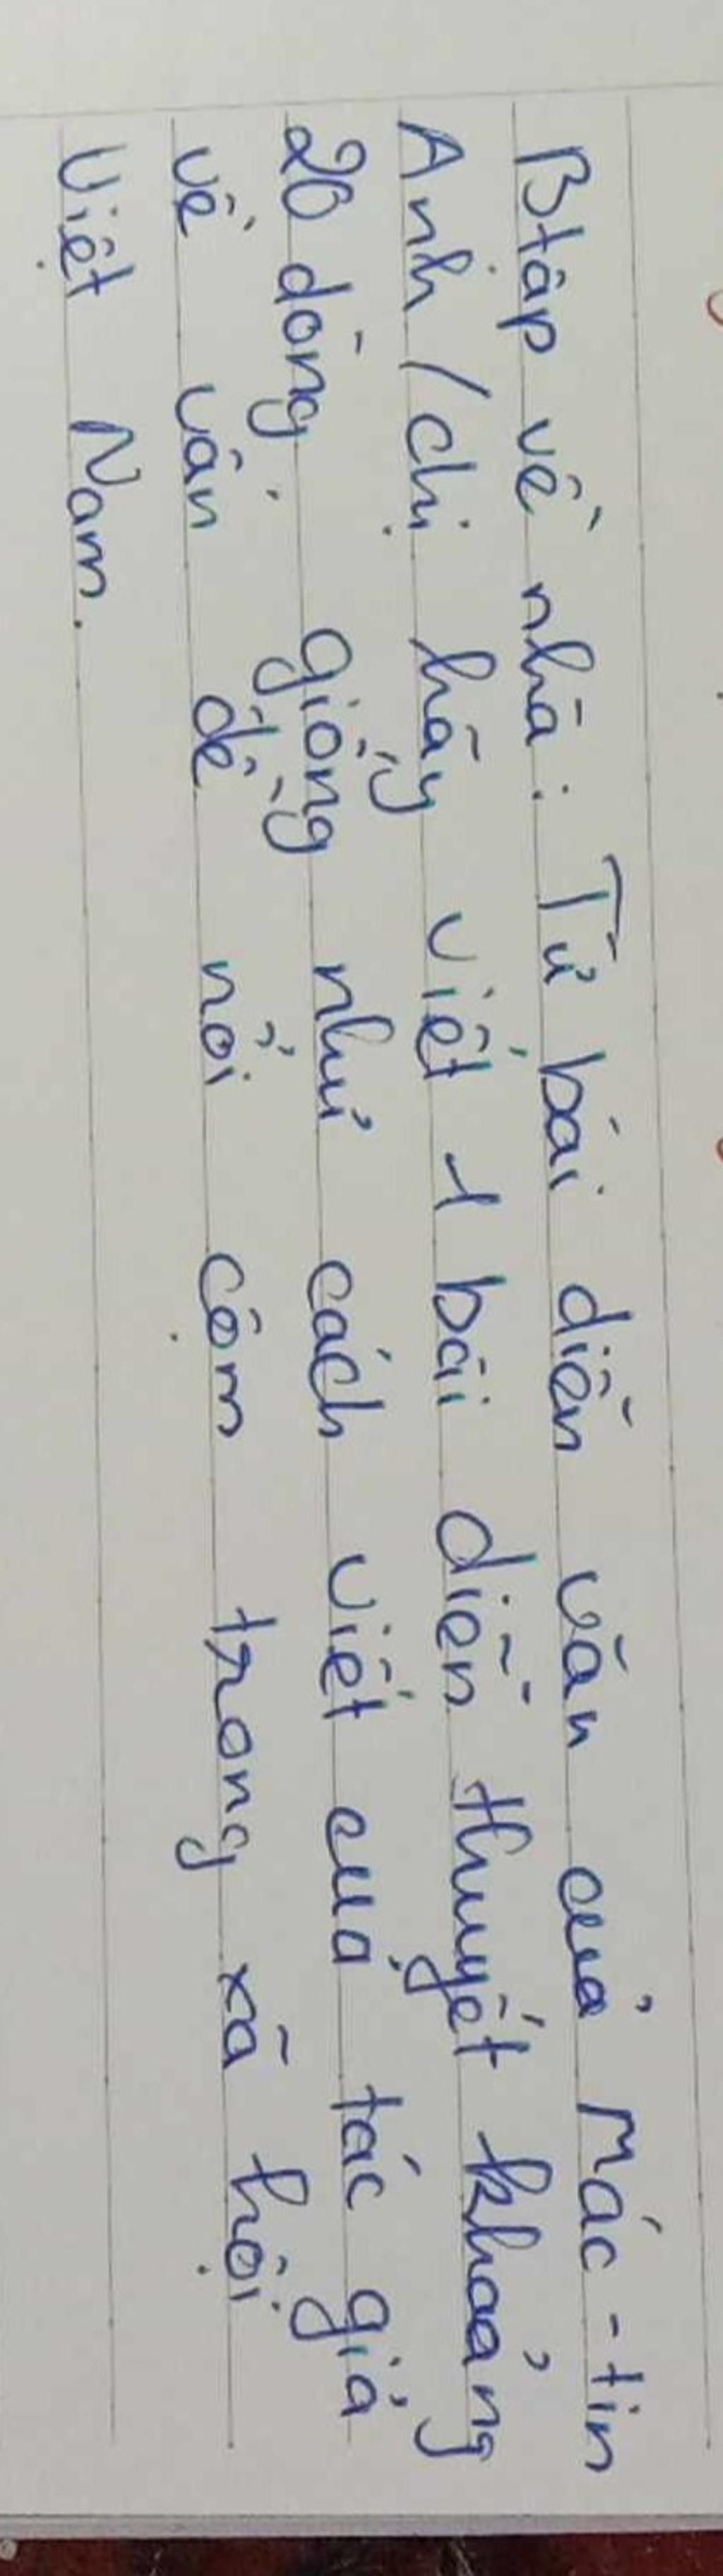 Btập về nhà: Từ bài diễn văn của Mác-tin
Anh/chị hãy viết 1 bài diễn thuyết khoảng
20 dòng. giống như cách viết của tác giả
về vấn đề nổi cộm trong xã hội
Việt Nam.